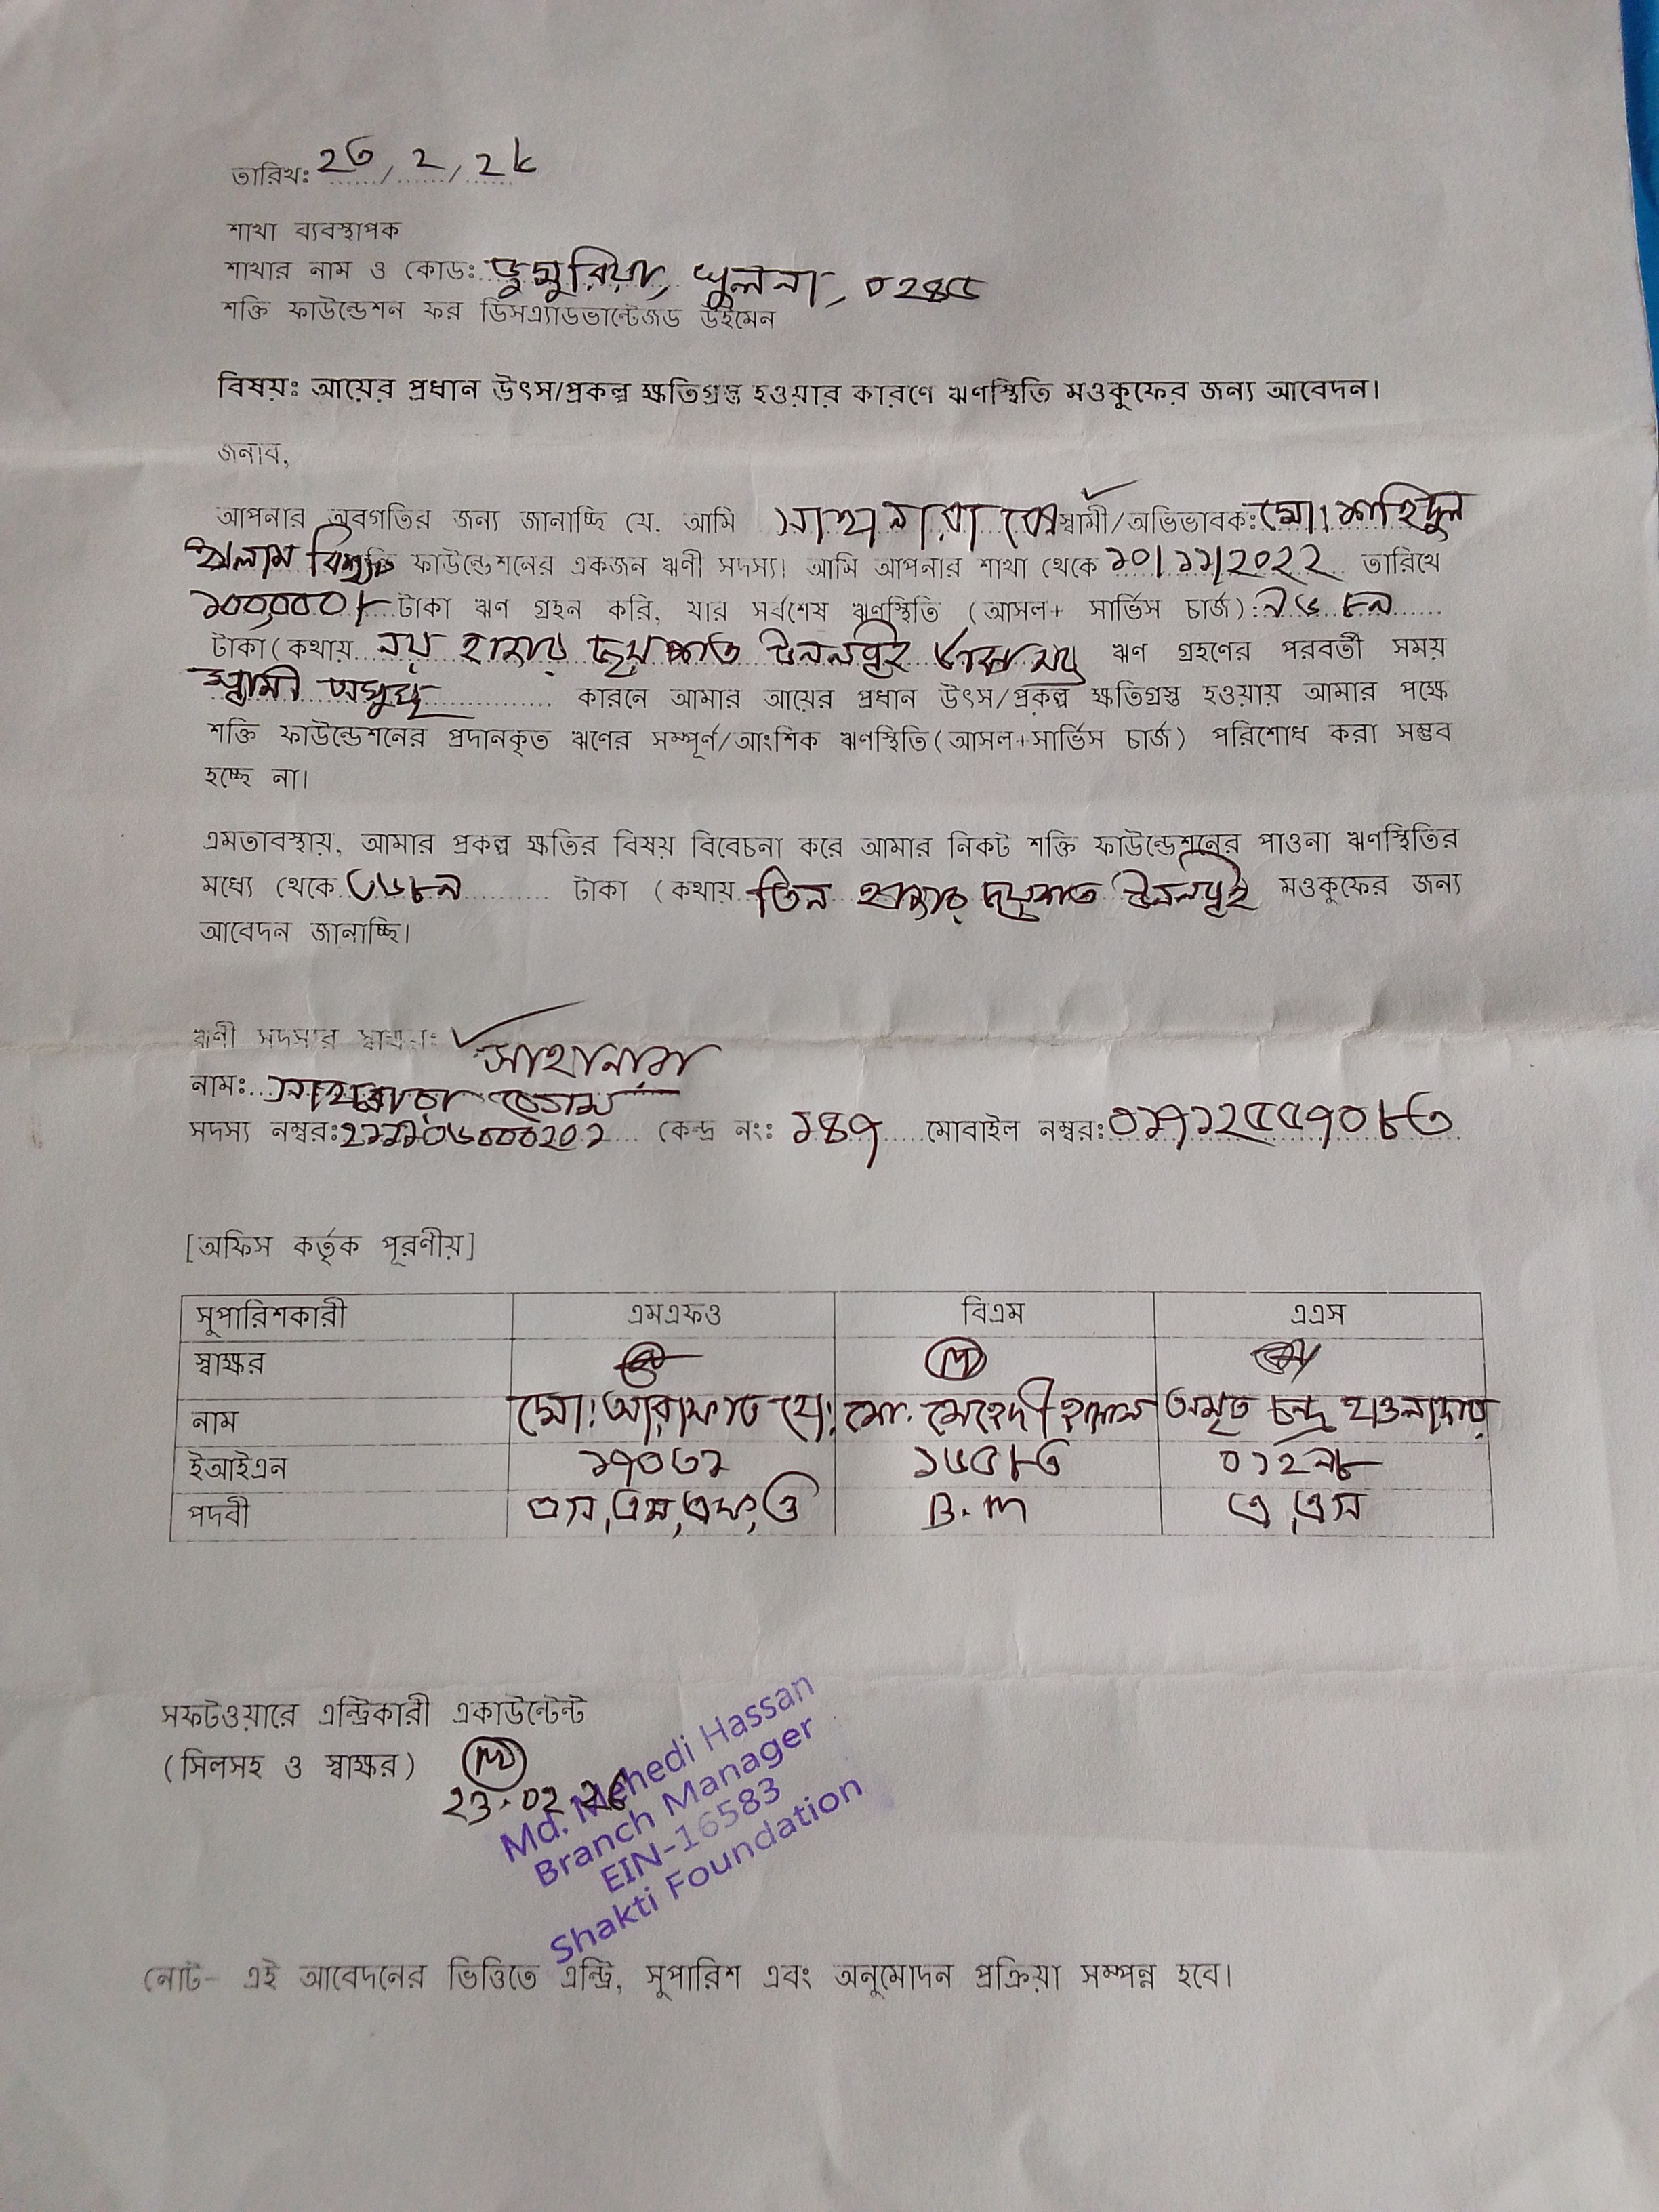 তারিখঃ ২৩/২/২৫
শাখা ব্যবস্থাপক
শাখার নাম ও কোডঃ ডুমুরিয়া, খুলনা, ০২৪৫
শক্তি ফাউন্ডেশন ফর ডিসএ্যাডভান্টেজড উইমেন
বিষয়ঃ আয়ের প্রধান উৎস/প্রকল্প ক্ষতিগ্রস্ত হওয়ার কারণে ঋণস্থিতি মওকুফের জন্য আবেদন।
জনাব,
আপনার অবগতির জন্য জানাচ্ছি যে, আমি সাহানারা বেগম স্বামী/অভিভাবকঃ মোঃ শাহিদুল
ইসলাম বিশ্বাস ফাউন্ডেশনের একজন ঋণী সদস্য। আমি আপনার শাখা থেকে ১০/১১/২০২২ তারিখে
১০০,০০০/- টাকা ঋণ গ্রহন করি, যার সর্বশেষ ঋণস্থিতি (আসল+ সার্ভিস চার্জ): ৯৬৮৯
টাকা (কথায় নয় হাজার ছয়শত উননব্বই টাকা মাত্র ঋণ গ্রহণের পরবর্তী সময়
স্বামী অসুস্থ কারনে আমার আয়ের প্রধান উৎস/প্রকল্প ক্ষতিগ্রস্ত হওয়ায় আমার পক্ষে
শক্তি ফাউন্ডেশনের প্রদানকৃত ঋণের সম্পূর্ণ/আংশিক ঋণস্থিতি (আসল+সার্ভিস চার্জ) পরিশোধ করা সম্ভব
হচ্ছে না।
এমতাবস্থায়, আমার প্রকল্প ক্ষতির বিষয় বিবেচনা করে আমার নিকট শক্তি ফাউন্ডেশনের পাওনা ঋণস্থিতির
মধ্যে থেকে ৩৬৮৯ টাকা (কথায় তিন হাজার ছয়শত উননব্বই মওকুফের জন্য
আবেদন জানাচ্ছি।
ঋণী সদস্যর স্বাক্ষরঃ সাহানারা
নামঃ সাহানারা বেগম
সদস্য নম্বরঃ কেন্দ্র নংঃ ১৪৭ মোবাইল নম্বরঃ ০১৭১২৫৫৭০৮৩
[অফিস কর্তৃক পূরণীয়]
সুপারিশকারী এমএফও বিএম এএস
স্বাক্ষর
নাম মোঃ আরাফাত হোঃ মোঃ মেহেদী হাসান অমৃত চন্দ্র হাওলাদার
ইআইএন ১৭০৩১ ১৬৫৮৩ ০১২৯৮
পদবী এস,এম,এফ,ও B.M এ,এস
সফটওয়ারে এন্ট্রিকারী একাউন্টেন্ট
(সিলসহ ও স্বাক্ষর)
23.02.25
Md. Mehedi Hassan
Branch Manager
EIN-16583
Shakti Foundation
নোট- এই আবেদনের ভিত্তিতে এন্ট্রি, সুপারিশ এবং অনুমোদন প্রক্রিয়া সম্পন্ন হবে।